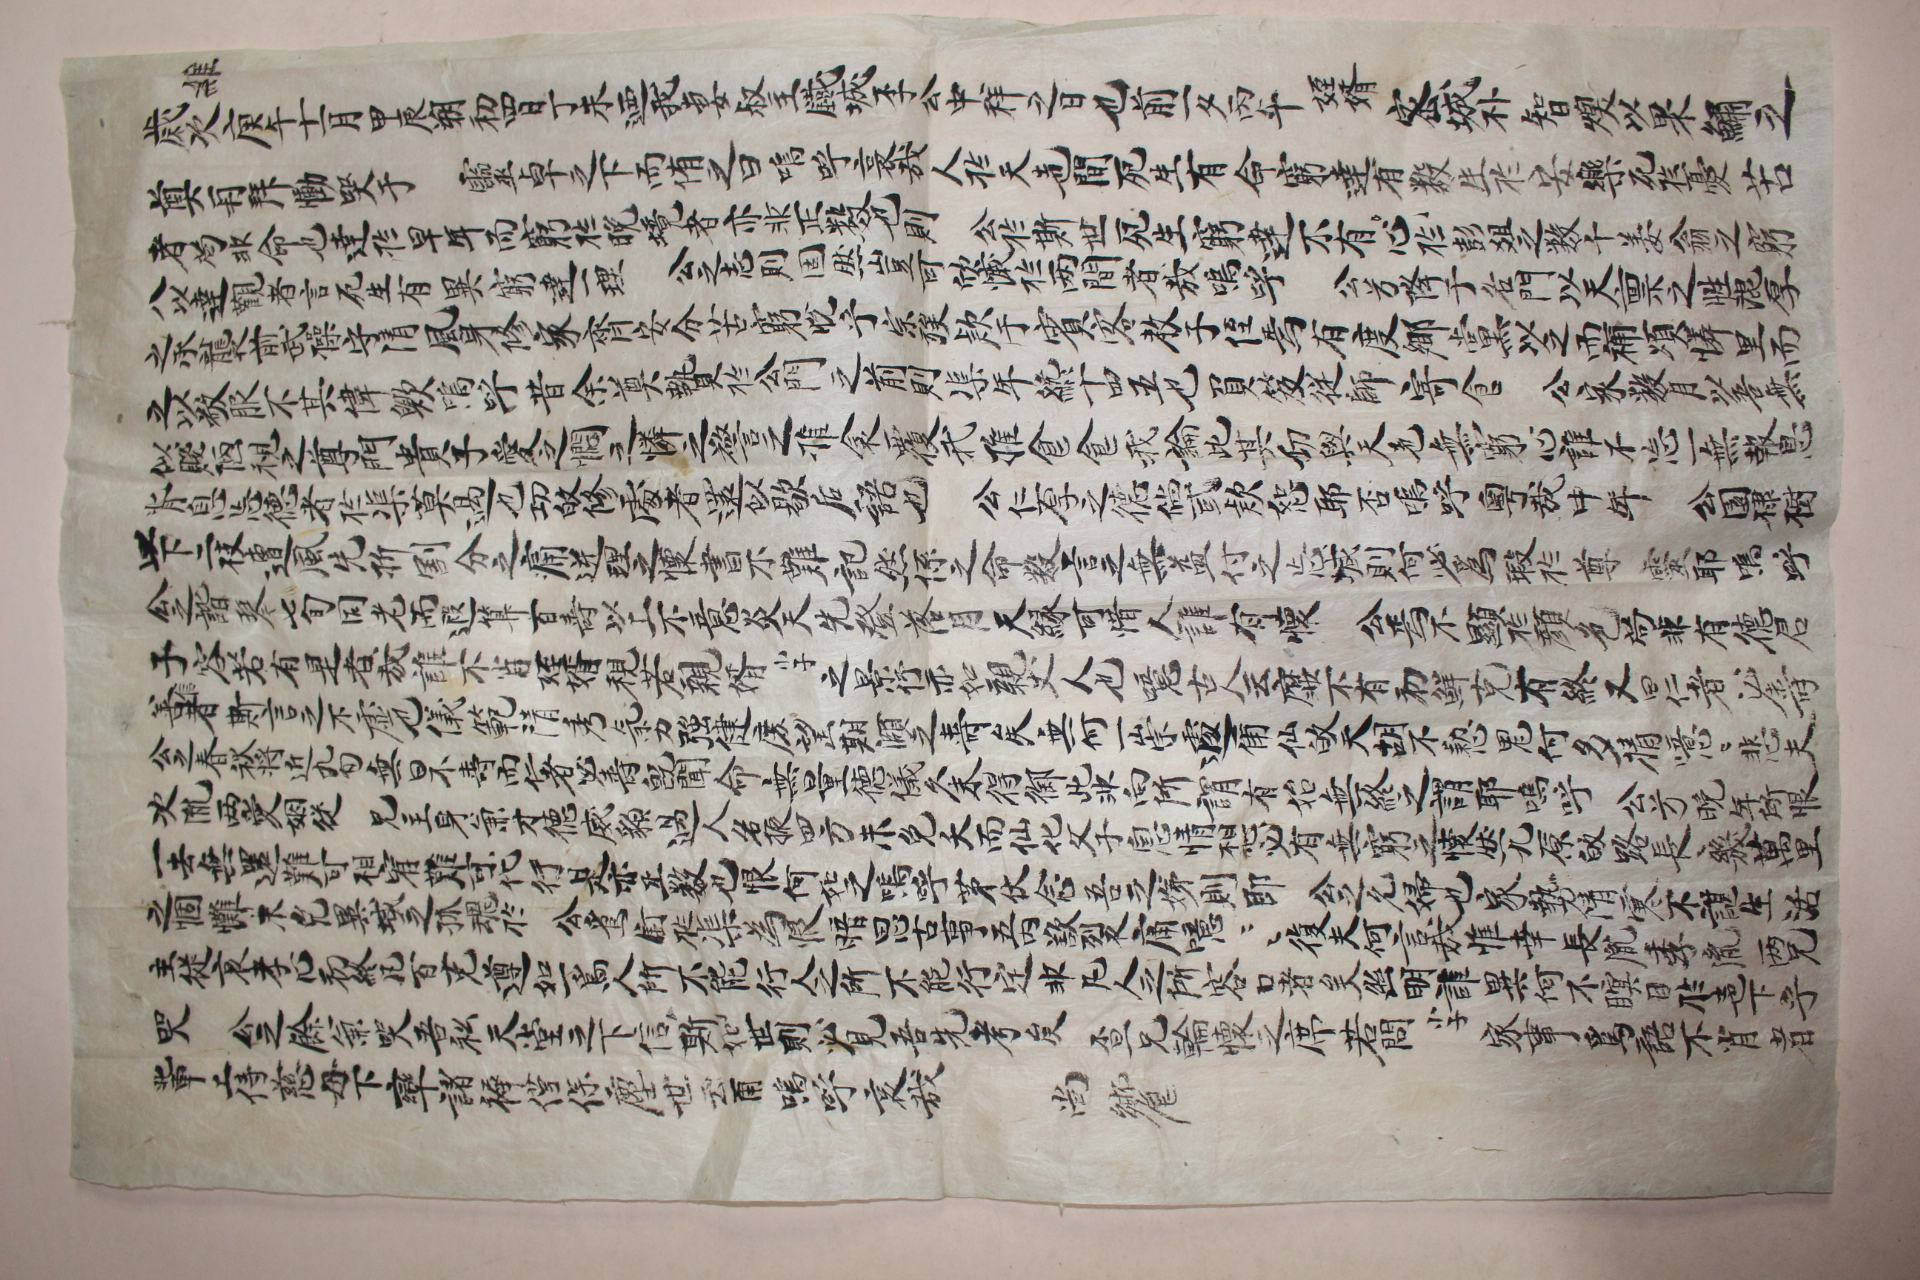 維
歲次庚午十一月甲辰朔初四日丁未迺我妻叔主鐵城李公中祥之日也前一夕丙午 姪婿 密城朴智煥以果鱐之
奠再拜慟哭于 靈卓之下而侑之曰嗚呼哀哉人於天地間死生有命窮達有數生於安樂死於憂苦
者爲非命也達於早年而窮於晚境者亦非正數也則 公於斯世死生窮達不有心於彭殂之數千姜翁之窮
八以達觀者言死生有異窮達一理 公之志則固然豈可 懺於兩間者哉嗚呼 公芳降于名門以天禀之性混厚
之承襲前武操守清風身修家齊安分苦窮悅乎宗族款于賓客敎子侄焉有度鄉黨以之而補頌隣里而
之以敬服不其偉歟嗚呼昔余奠贄於公門之前則渠年纔十四五也負笈從師寄食 公家數月以吾無
似 視之尊門貴子愛之憫之憐之警之推衾覆我推食食我論此其功與天地無窮心誰不忘一無報息
背息忘德者於渠莫過也功 修處者還似歇后語也 公仁厚之德倘或款恕耶否嗚呼粤哉中年 公園棣樹
以下二枝遭風先折割分之痛逆理之懷書不難記然係之命數言之無益付之忘域則何必爲瑕於尊靈耶嗚呼
公之諧琴七旬同老而遐算百壽以上不意炎天先登落月天緣可惜人誰有懷 公焉不顯於顏色尚非有德君
子容若有是者哉誰不肖姪婿視若親婿 小子之景仰亦如親丈人也噫古人云靡不有初鮮克有終又曰仁者必壽
善者 信 斯言之不虛也儀範清秀氣力強健庶望期頤之壽矣無何一崇遽 仙 天胡不 鬼何多猜噫ミ悲夫
公之春秋將近九旬無曰不壽而仁者必壽旣聞命無量德儀久未得御此非向所謂有始無終之謂耶嗚呼 公芳晚年所恨
次胤兩愛姻從 兄主身氣才德威貌過人名振四方未免夭而仙化父子息情想必有無窮之懷然九原 路長ミ幾萬里
一去無還難可相宥難可代行是亦正數也恨何如之嗚呼苐伏念吾之娣則卽 公之允婦也家勢清寒不謀生活
之悃 未免異域之孤魂於 公爲 於渠爲恨暗思古事五內欲裂痛噫ミミ復夫何言哉惟幸長胤季胤兩兄
主從哀孝心初終凡百克遵如一爲人所不能行人之所不能行定非凡人之所容口者矣幽明誰異何不瞑目於地下乎
哭 公之餘氣哭吾私天堂之下信斯如世則必見吾先考矣 查兄輪懷之席若問 小子家事爲語不肖者
輩上侍慈母下率諸 僅保塵世云爾嗚呼哀哉 尚饗